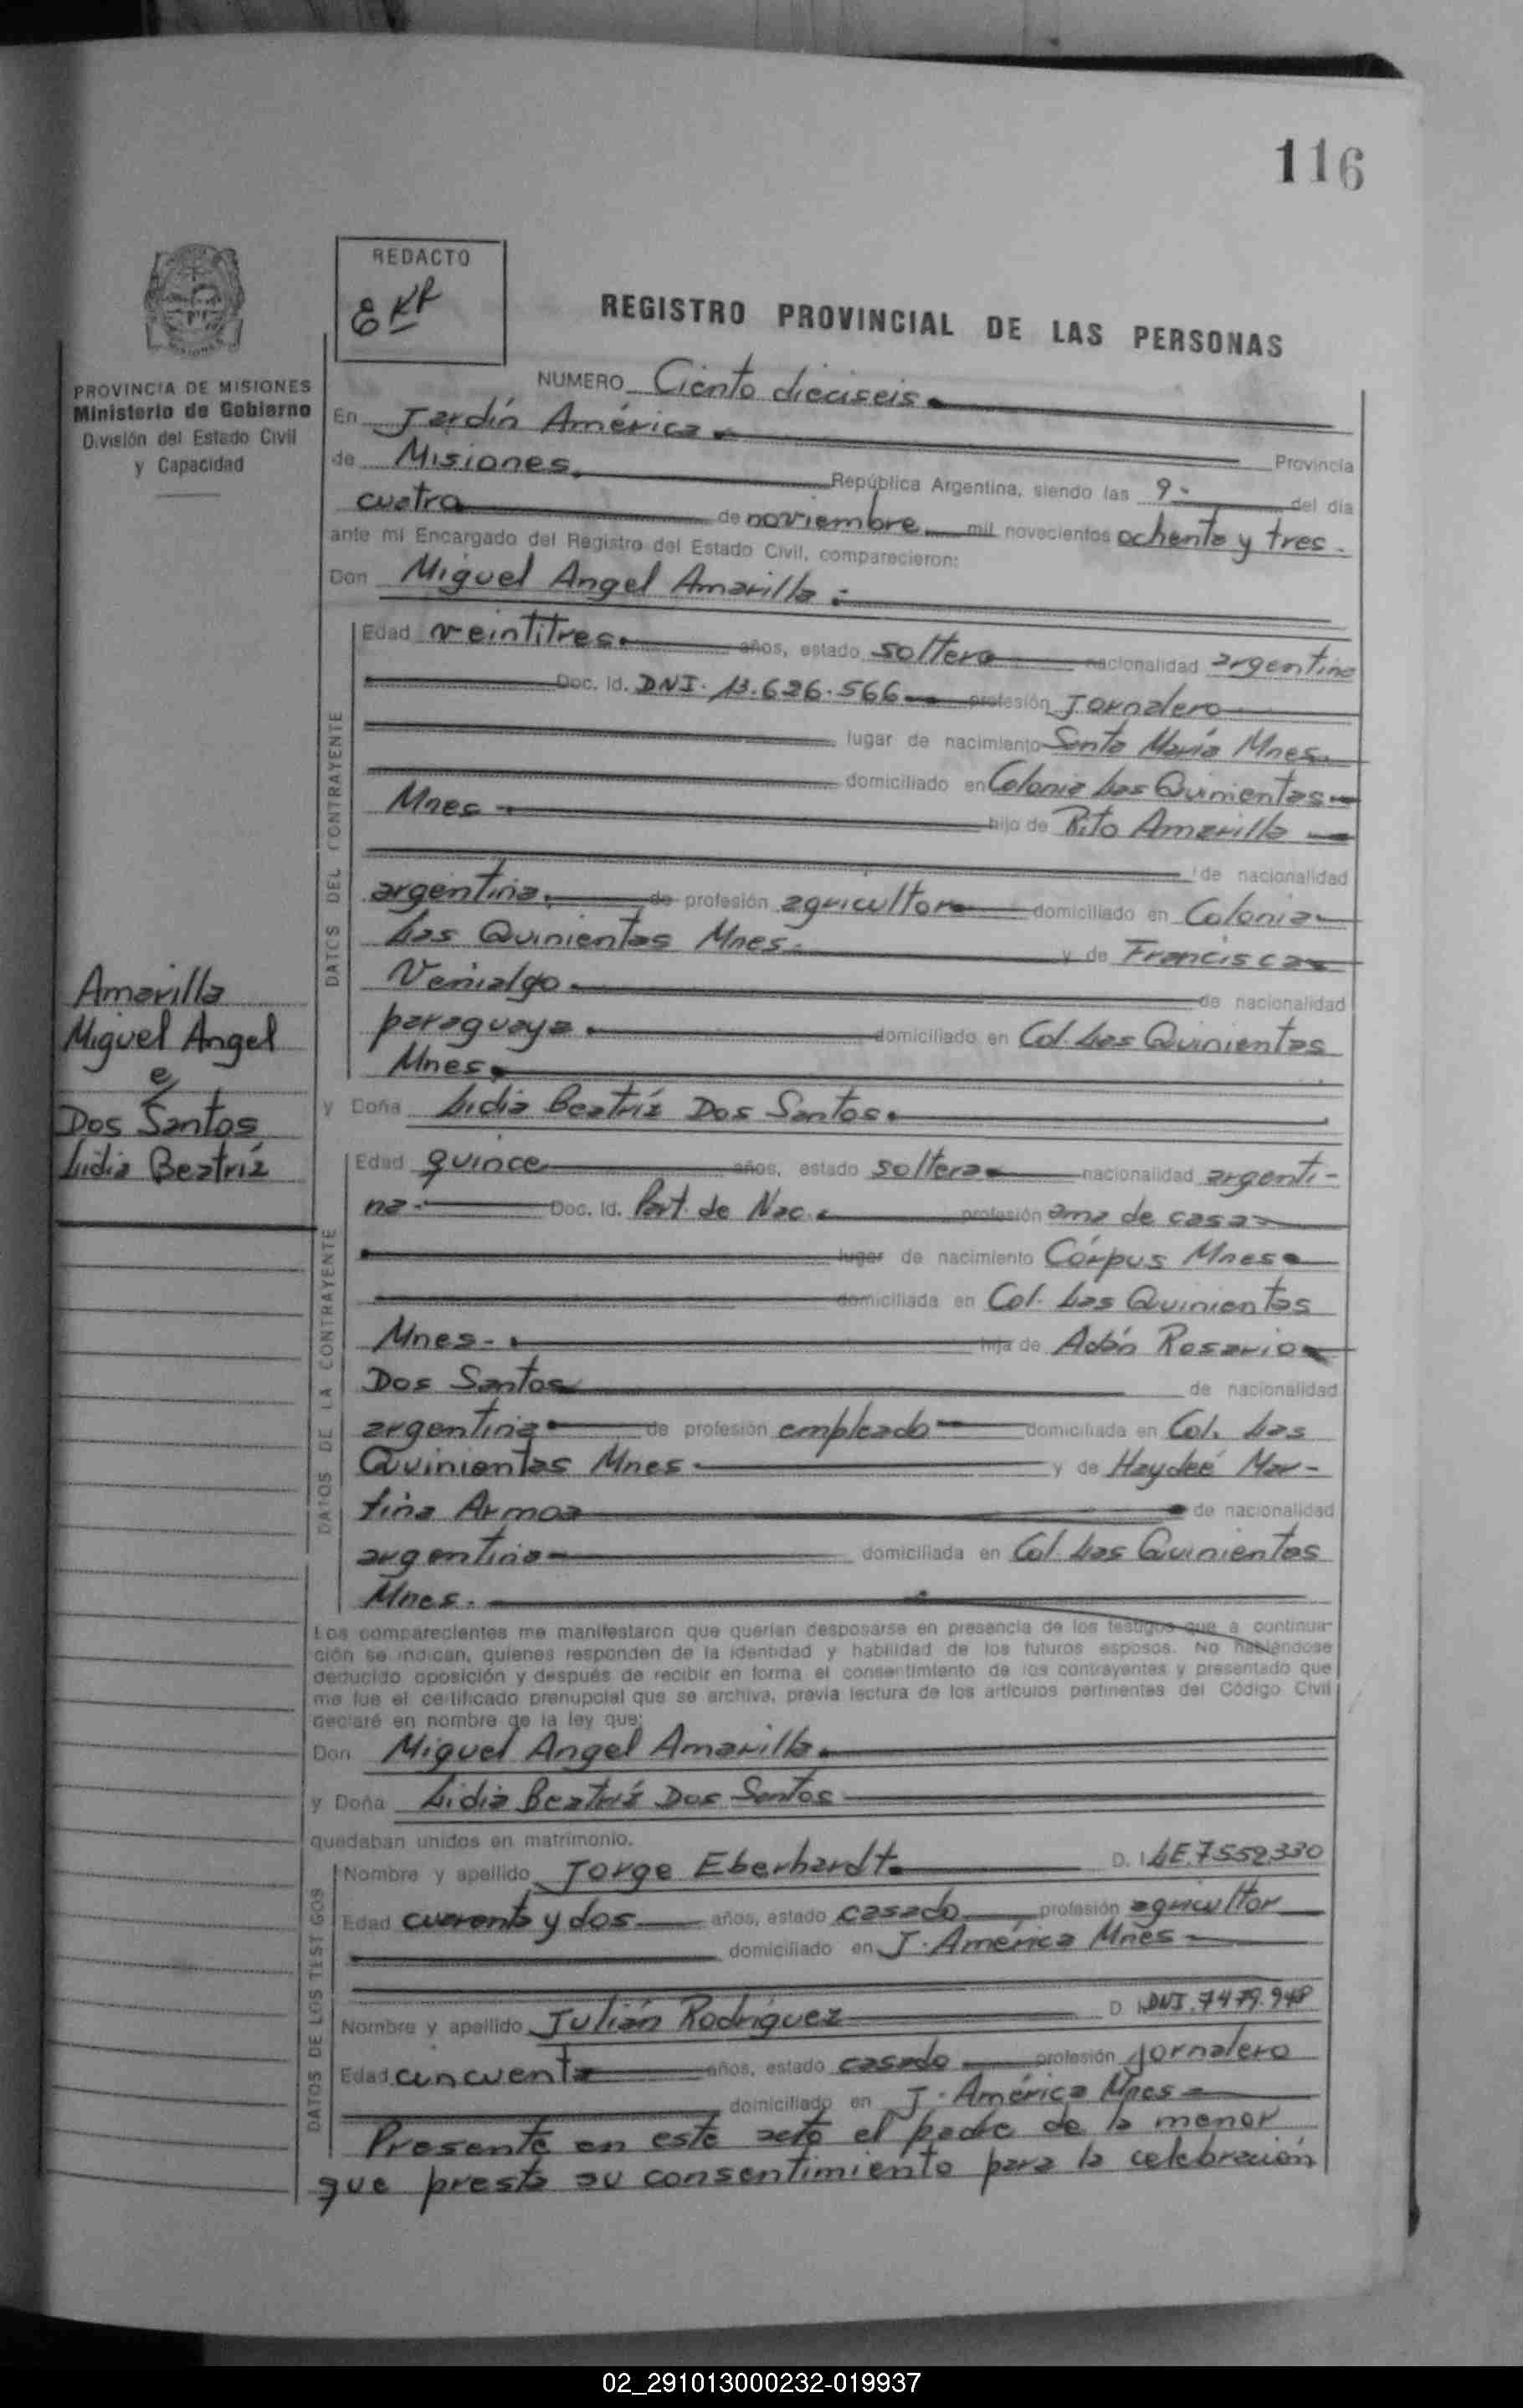 116
REDACTO
REGISTRO PROVINCIAL DE LAS PERSONAS
PROVINCIA DE MISIONES
Ministerio de Gobierno
División del Estado Civil
y Capacidad
NUMERO Ciento dieciseis
En Jardín América
de Misiones, Provincia
República Argentina, siendo las 9- del día
cuatro de noviembre mil novecientos ochenta y tres.
ante mí Encargado del Registro del Estado Civil, comparecieron:
Don Miguel Angel Amarilla
DATOS DEL CONTRAYENTE
Edad veintitres años, estado soltero nacionalidad argentina
Doc. Id. DNI. 13.626.566 profesión Jornalero
lugar de nacimiento Santa María Mnes.
domiciliado en Colonia Las Quinientas
Mnes hijo de Rito Amarilla
de nacionalidad
argentina. de profesión agricultor domiciliado en Colonia
Las Quinientas Mnes. y de Francisca
Venialgo de nacionalidad
paraguaya domiciliado en Col. Las Quinientas
Mnes
Amarilla
Miguel Angel
e
Dos Santos
Lidia Beatríz
y Doña Lidia Beatríz Dos Santos.
DATOS DE LA CONTRAYENTE
Edad quince años, estado soltera nacionalidad argenti-
na. Doc. Id. Part. de Nac. profesión ama de casa
lugar de nacimiento Córpus Mnes
domiciliada en Col. Las Quinientas
Mnes- hija de Adán Rosario
Dos Santos de nacionalidad
argentina de profesión empleado domiciliada en Col. Las
Quinientas Mnes. y de Haydeé Mar-
tina Armoa de nacionalidad
argentina domiciliada en Col. Las Quinientas
Mnes.
Los comparecientes me manifestaron que querían desposarse en presencia de los testigos que a continua-
ción se indican, quienes responden de la identidad y habilidad de los futuros esposos. No habiéndose
deducido oposición y después de recibir en forma el consentimiento de los contrayentes y presentado que
me fue el certificado prenupcial que se archiva, previa lectura de los artículos pertinentes del Código Civil
declaré en nombre de la ley que:
Don Miguel Angel Amarilla
y Doña Lidia Beatríz Dos Santos
quedaban unidos en matrimonio.
DATOS DE LOS TESTIGOS
Nombre y apellido Jorge Eberhardt D. I. LE.7552.330
Edad cuarenta y dos años, estado casado profesión agricultor
domiciliado en J. América Mnes
Nombre y apellido Julián Rodríguez D. I. DNI. 7479.948
Edad cincuenta años, estado casado profesión jornalero
domiciliado en J. América Mnes
Presente en este acto el padre de la menor
que presta su consentimiento para la celebración
02_291013000232-019937